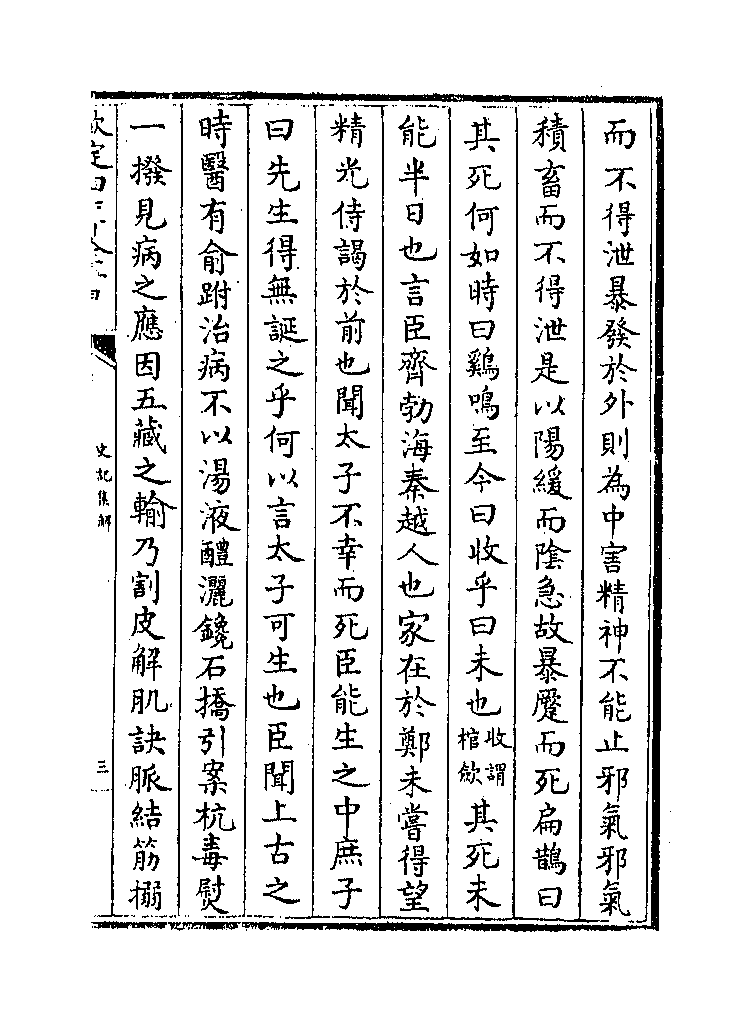 而不得泄暴發於外則為中害精神不能止邪氣邪氣
積畜而不得泄是以陽緩而陰急故暴蹷而死扁鵲曰
其死何如時曰鷄鳴至今曰收乎曰未也收謂棺歛其死未
能半日也言臣齊勃海秦越人也家在於鄭未嘗得望
精光侍謁於前也聞太子不幸而死臣能生之中庶子
曰先生得無誕之乎何以言太子可生也臣聞上古之
時醫有俞跗治病不以湯液醴灑鑱石撟引案杭毒熨
一撥見病之應因五藏之輸乃割皮解肌訣脈結筋搦
史記集解
三